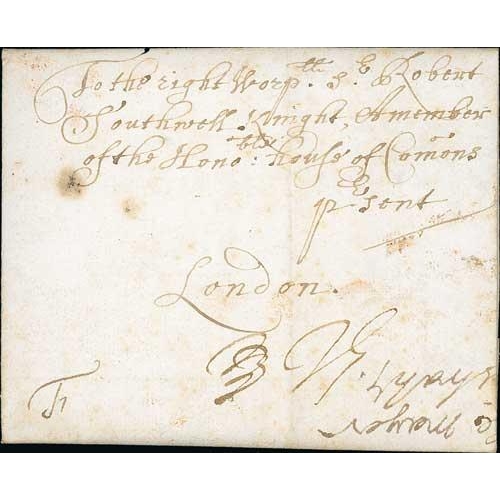 To the right Worp.ll Sr Robert
Southwell Knight, A member
of the Honoble: House of Comons
prsent
London.